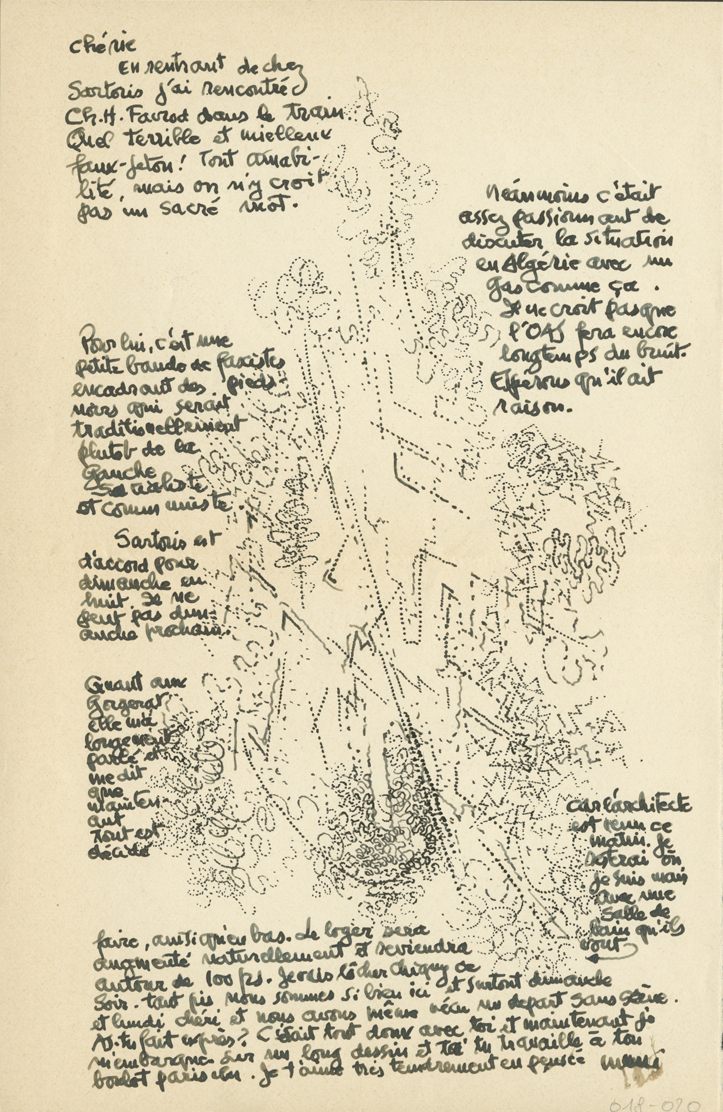 Chérie
En rentrant de chez
Sartoris j'ai rencontré
Ch.H. Favrod dans le train.
Quel terrible et mielleux
faux-jeton! Tout amabi-
lité, mais on n'y croit
pas un sacré mot.
Néanmoins c'était
assez passionnant de
discuter la situation
en Algérie avec un
gas comme ça.
Je ne croit pas que
l'OAS fera encore
longtemps du bruit.
Espérons qu'il ait
raison.
Pour lui, c'est une
petite bande de fascistes
encadrant des pieds-
noirs qui serait
traditionellement
plutot de la
Gauche
Socialiste
et communiste.
Sartoris est
d'accord pour
dimanche en
huit. Je ne
peut pas dim-
anche prochain.
Quant aux
Gorgerat
elle m'a
longement
parlé et
me dit
que
mainten-
ant
tout est
décidé
car l'architecte
est venu ce
matin. Je
où
je suis mais
avec une
Salle de
bain qu'ils
vont
faire, ainsi qu'en bas. Le loger sera
augmenté naturellement et reviendra
autour de 100 frs. Je vais lâcher ce
Soir. tant pis nous sommes si bien ici et surtout dimanche
et lundi, chéri et nous avons même vécu un depart sans
As-tu fait exprès? C'était tout doux avec toi et maintenant je
m'embarque sur un long dessin et toi tu travaille à ton
boulot parisien. Je t'aime très tendrement en pensée
018-020